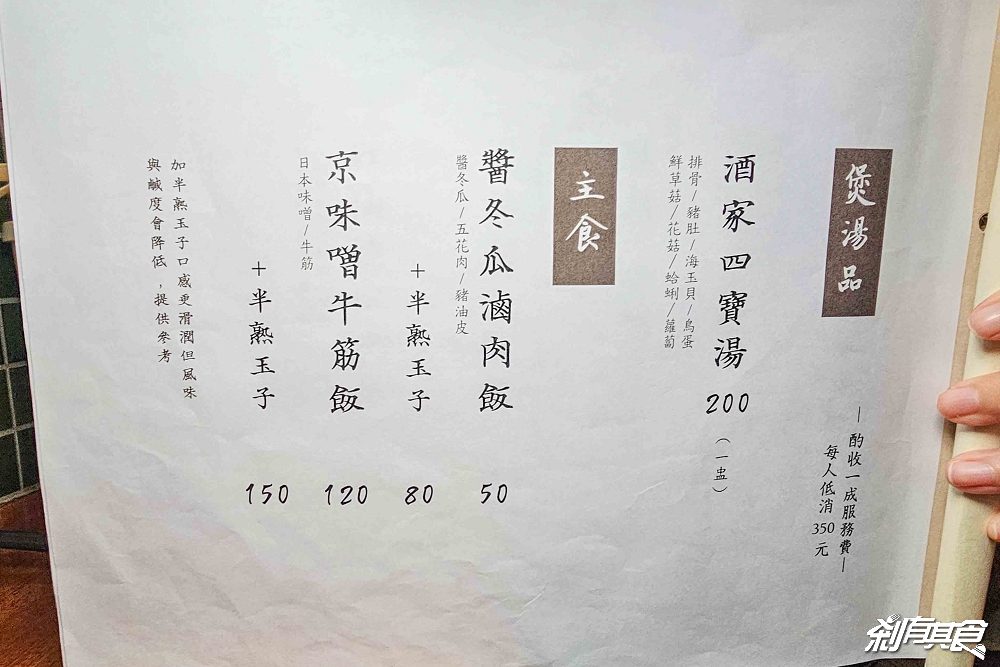 煲湯品
—酌收一成服務費—
每人低消350元
酒家四寶湯 200 (一盅)
排骨/豬肚/海玉貝/鳥蛋
鮮草菇/花菇/蛤蜊/蘿蔔
主食
醬冬瓜滷肉飯 50
醬冬瓜/五花肉/豬油皮
+半熟玉子 80
京味噌牛筋飯 120
日本味噌/牛筋
+半熟玉子 150
加半熟玉子口感更滑潤但風味
與鹹度會降低，提供參考
剎有其食